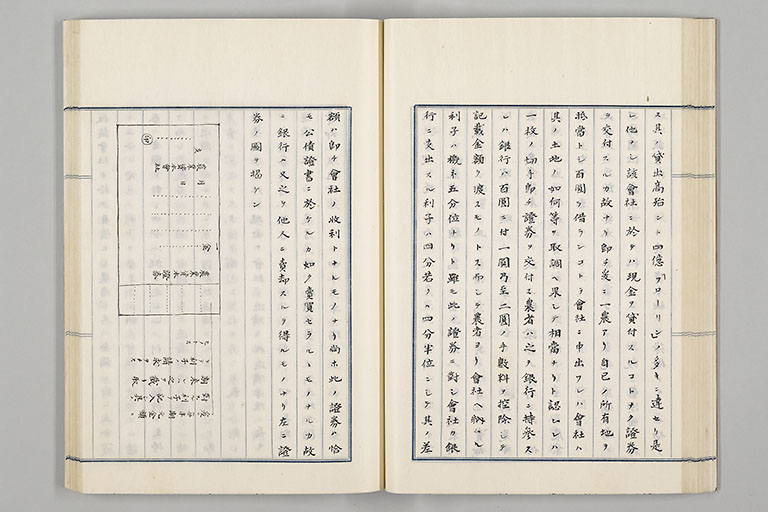 ス其ノ貸出高殆ント四億「フローリン」ノ多キニ達セリ是
レ他ナシ該會社ニ於テハ現金ヲ貸付スルコトナク證券
ヲ交付スルカ故ナリ即チ爰ニ一農アリ自己ノ所有地ヲ
抵當トシ百圓ヲ借ランコトヲ會社ニ申出フレハ會社ハ
其ノ土地ノ如何等ヲ取調ヘ果シテ相當ナリト認ムレハ
一枚ノ切手即チ證券ヲ交付ス農者ハ之ヲ銀行ニ持參ス
レハ銀行ハ百圓ニ付一圓乃至二圓ノ手數料ヲ控除シテ
記載金額ヲ渡スモノトス而シテ農者ヨリ會社ヘ納ムル
利子ハ概ネ五分位ナリト雖モ此ノ證券ニ對シ會社カ銀
行ニ支出スル利子ハ四分若クハ四分半位ニシテ其ノ差
額ハ即チ會社ノ收利トナルモノナリ尚ホ此ノ證券ハ恰
モ公債證書ニ於ケルカ如ク賣買セラルヽモノナルカ故
ニ銀行ハ又之ヲ他人ニ賣却スルヲ得ルモノナリ左ニ證
券ノ圖ヲ掲ケン
農業資本證券
一金
月 日
農業資本會社
印